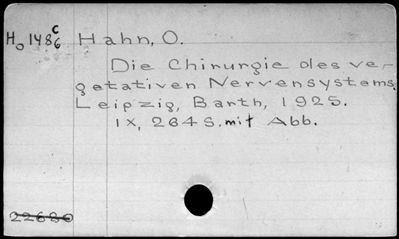 Ho 148c6 Hahn, O.
Die Chirurgie des ve-
getativen Nervensystems.
Leipzig, Barth, 1925.
IX, 264 S. mit Abb.
22680